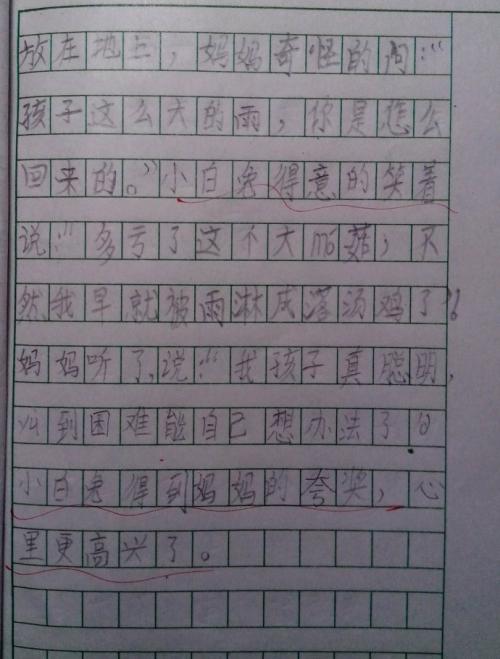 放在地上，妈妈奇怪的问：“
孩子这么大的雨，你是怎么
回来的。”小白兔得意的笑着
说：“多亏了这个大mó菇，不
然我早就被雨淋成落汤鸡了”。
妈妈听了，说：“我孩子真聪明，
yù到困难能自己想办法了。
小白兔得到妈妈的夸奖，心
里更高兴了。